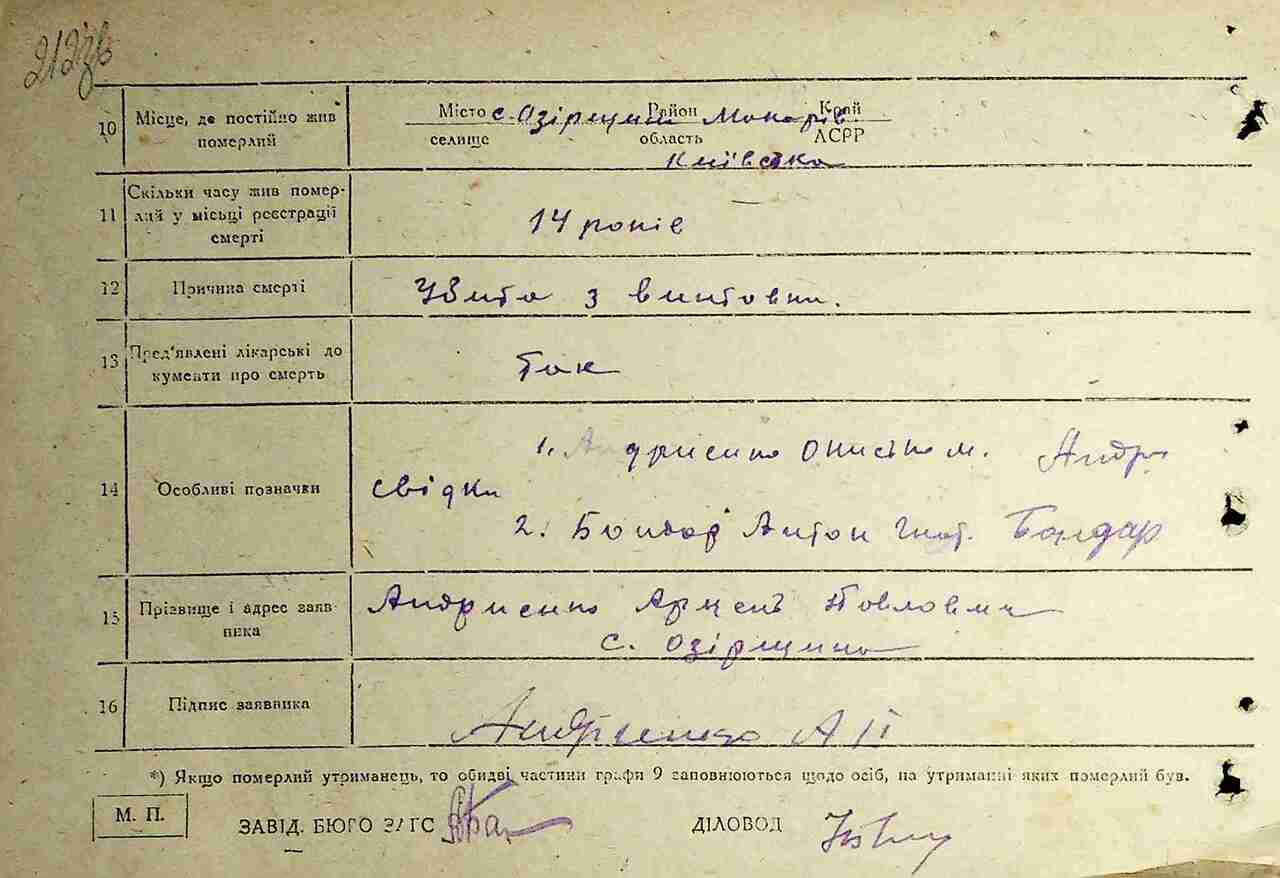 212зв
10 Місце, де постійно жив померлий
Місто с. Озірщина Район Макарів Край
селище область АСРР
Київська
11 Скільки часу жив помер-
лий у місьці реєстрації
смерті
14 років
12 Причина смерті Убита з винтовки.
13 Пред'явлені лікарські до
кументи про смерть
Так
14 Особливі позначки
1. Андриенко Ониська м. Андри
свідки
2. Бондар Антон Гнат. Бондар
15 Прізвище і адрес заяв-
ника
Андриенко Арсень Павлович
с. Озірщина
16 Підпис заявника Андриенко А П
*) Якщо померлий утриманець, то обидві частини графи 9 заповнюються щодо осіб, на утриманні яких померлий був.
М. П.
ЗАВІД. БЮРО ЗАГС ДІЛОВОД